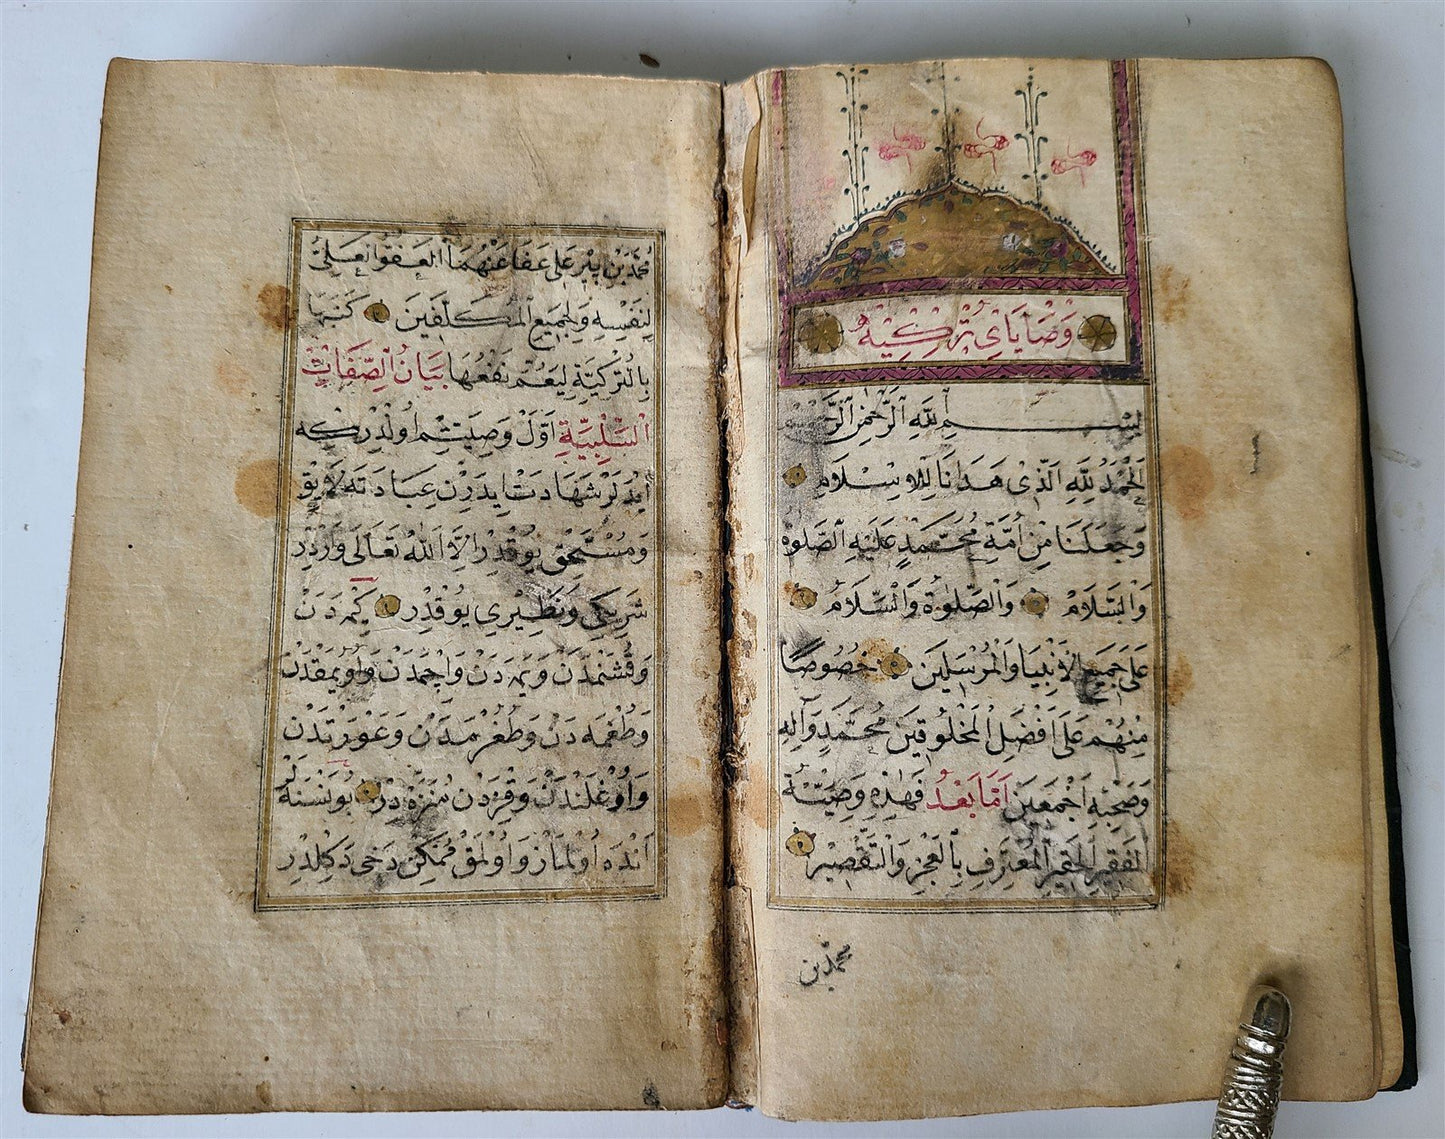 وَصَايَايِ تُرْكِيَّه
بِسْمِ اللهِ الرَّحْمٰنِ الرَّحِيمِ
اَلْحَمْدُ لِلّٰهِ الَّذِى هَدَانَا لِلْاِسْلَامِ
وَجَعَلَنَا مِنْ اُمَّةِ مُحَمَّدٍ عَلَيْهِ الصَّلٰوةُ
وَالسَّلَامُ وَالصَّلٰوةُ وَالسَّلَامُ
عَلَى جَمِيعِ الْاَنْبِيَا وَالْمُرْسَلِينَ خُصُوصًا
مِنْهُمْ عَلَى اَفْضَلِ الْمَخْلُوقِينَ مُحَمَّدٍ وَآلِهِ
وَصَحْبِهِ اَجْمَعِينَ اَمَّا بَعْدُ فَهٰذِهِ وَصِيَّةُ
الْفَقِيرِ الْحَقِيرِ الْمُعْتَرِفِ بِالْعَجْزِ وَالتَّقْصِيرِ
محمد بن
مُحَمَّدِ بْنِ پِيرِ عَلِى عَفَا عَنْهُمَا الْعَفُوُّ الْعَلِىُّ
لِنَفْسِهِ وَلِجَمِيعِ الْمُكَلَّفِينَ كَتَبَهَا
بِالتُّرْكِيَّةِ لِيَعُمَّ نَفْعُهَا بَيَانُ الصِّفَاتْ
السَّلْبِيَّةِ اَوَّلْ وَصِيَّتِمْ اُولْدِرْكِه
اَيْدَلَرْ شَهَادَتْ اِيدَرِنْ عِبَادَتَه لَايِقْ
وَمُسْتَحِقْ يُوقْدِرْ اِلَّا اللهُ تَعَالَى وَرْدِرْ
شَرِيكِى وَنَظِيرِى يُوقْدِرْ يَمَه دَنْ
وَاُوغْلَنْدَنْ وَقِزْدَنْ مُنَزَّهْ دِرْ بُو نَسْنَه لَرْ
اَنْدَه اُولْمَازْ وَاُولْمَقْ مُمْكِنْ دَخِى دَكِلْدِرْ